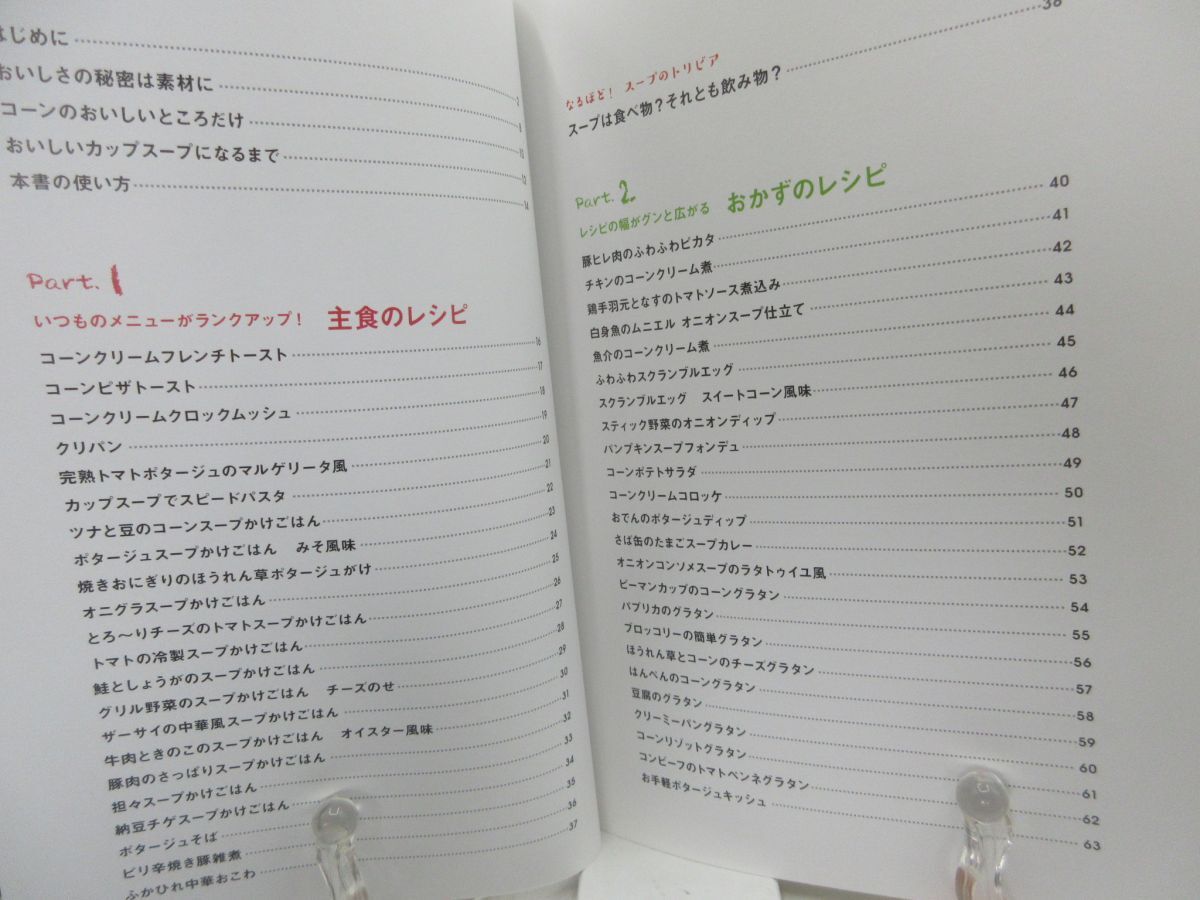 はじめに
おいしさの秘密は素材に 2
コーンのおいしいところだけ 8
おいしいカップスープになるまで 10
本書の使い方 12
14
Part.1
いつものメニューがランクアップ! 主食のレシピ
コーンクリームフレンチトースト 16
コーンピザトースト 17
コーンクリームクロックムッシュ 18
クリパン 19
完熟トマトポタージュのマルゲリータ風 20
カップスープでスピードパスタ 21
ツナと豆のコーンスープかけごはん 22
ポタージュスープかけごはん みそ風味 23
焼きおにぎりのほうれん草ポタージュがけ 24
オニグラスープかけごはん 25
とろ〜りチーズのトマトスープかけごはん 26
トマトの冷製スープかけごはん 27
鮭としょうがのスープかけごはん 28
グリル野菜のスープかけごはん チーズのせ 29
ザーサイの中華風スープかけごはん 30
牛肉ときのこのスープかけごはん オイスター風味 31
豚肉のさっぱりスープかけごはん 32
担々スープかけごはん 33
納豆チゲスープかけごはん 34
ポタージュそば 35
ピリ辛焼き豚雑煮 36
ふかひれ中華おこわ 37
なるほど! スープのトリビア
スープは食べ物?それとも飲み物? 38
Part.2
レシピの幅がグンと広がる おかずのレシピ
豚ヒレ肉のふわふわピカタ 40
チキンのコーンクリーム煮 41
鶏手羽元となすのトマトソース煮込み 42
白身魚のムニエル オニオンスープ仕立て 43
魚介のコーンクリーム煮 44
ふわふわスクランブルエッグ 45
スクランブルエッグ スイートコーン風味 46
スティック野菜のオニオンディップ 47
パンプキンスープフォンデュ 48
コーンポテトサラダ 49
コーンクリームコロッケ 50
おでんのポタージュディップ 51
さば缶のたまごスープカレー 52
オニオンコンソメスープのラタトゥイユ風 53
ピーマンカップのコーングラタン 54
パプリカのグラタン 55
ブロッコリーの簡単グラタン 56
ほうれん草とコーンのチーズグラタン 57
はんぺんのコーングラタン 58
豆腐のグラタン 59
クリーミーパングラタン 60
コーンリゾットグラタン 61
コンビーフのトマトペンネグラタン 62
お手軽ポタージュキッシュ 63